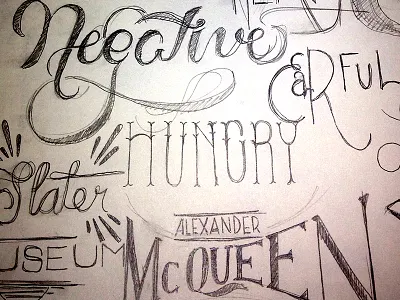 Negative
CaRFUL
HUNGRY
Slater
USEUM
ALEXANDER
McQUEEN